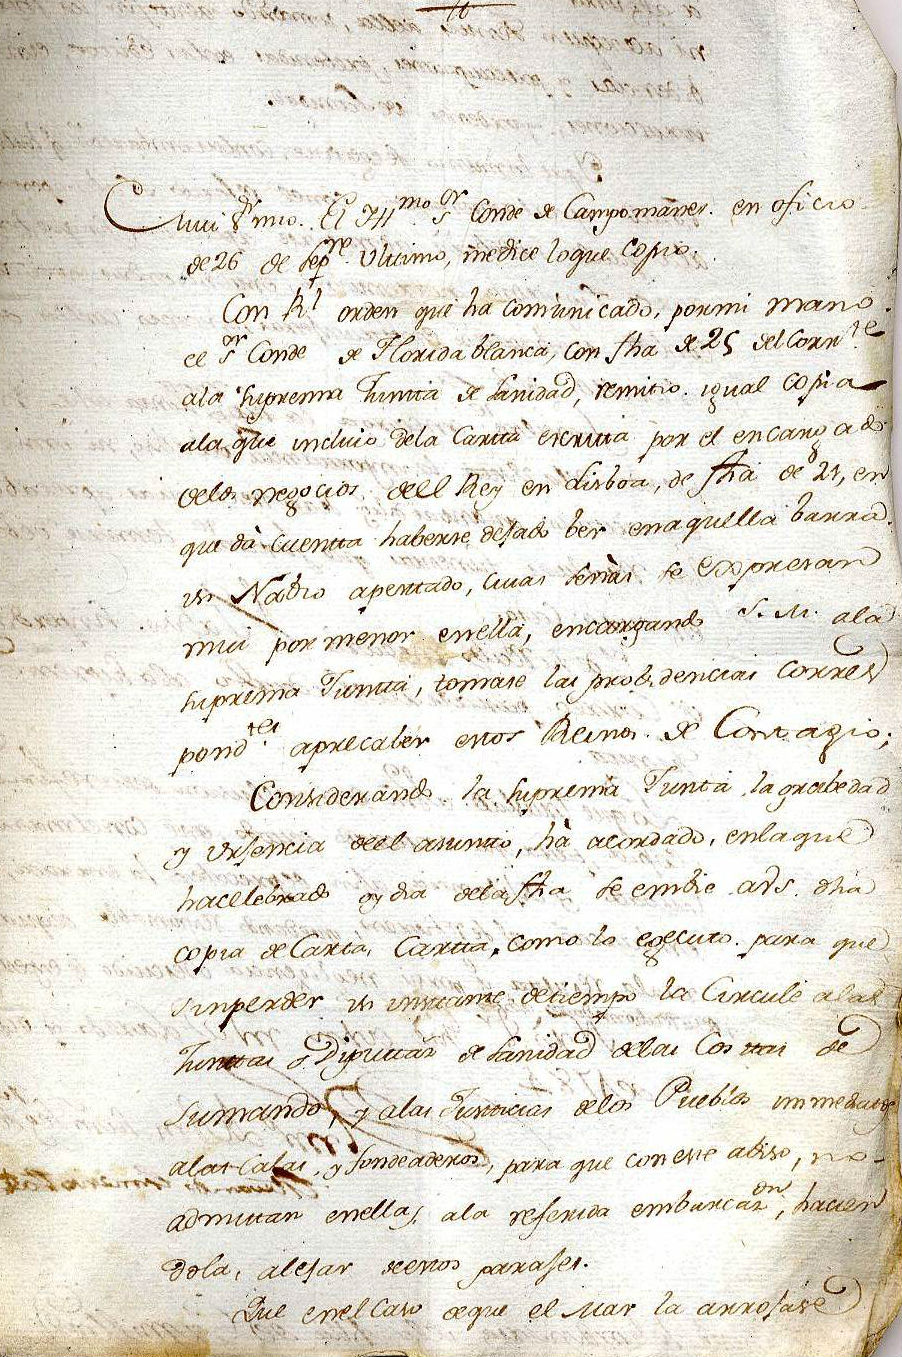 Mui Sr. mio. El Illmo. Sr. Conde de Campomanes. en oficio
de 26 de Sepre. Ultimo, me dice lo que Copio.
Con Rl. orden que ha comunicado, por mi mano
el Sr. Conde de Florida blanca, con fha de 25 del Corrte.
ala Suprema Junta de Sanidad, remitio igual copia
ala que incluio dela Carta escrita por el encargado
delos negocios del Rey en Lisboa, de fha de 21, en
que dà cuenta haberse dejado ber en aquella barra
un Nabio apestado, cuias señas se expresan
mui por menor en ella, encargando S. M. ala
Suprema Junta, tomase las probidencias Corres
pondtes. aprecaber estos Reinos de Contagio;
Considerando la Suprema Junta la grabedad
y Urjencia del asunto, hà acordado, enla que
hacelebrado oy dia dela fha se embie a VS. dha
copia de Carta, Carta, como lo egecuto para que
Sin perder un instante detiempo la Circule alas
Juntas o Diputaz. de Sanidad delas Costas de
Sumando, y alas Justicias delos Pueblos immediatos
alas Calas, y fondeaderos, para que con este abiso, no
admitan en ellas, ala referida embarcazon, hacien
dola, alejar de estos parajes.
Que en el Caso de que el Mar la arrojase